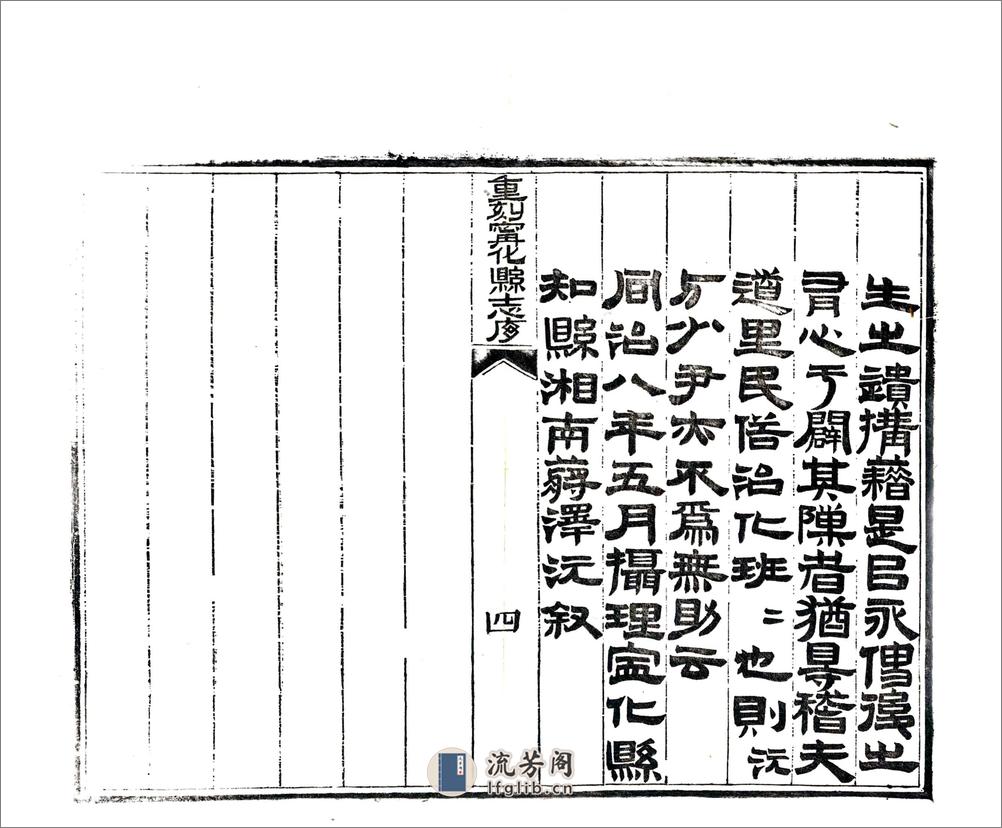 生之遺搆藉是㠯永傳後之
有心于闢其隙者猶㝵稽夫
道里民俗治化班〻也則沅
於少尹亦不為無助云
同治八年五月攝理寍化縣
知縣湘南蔣澤沅叙
重刻甯化縣志序
四
流芳阁
lfglib.cn